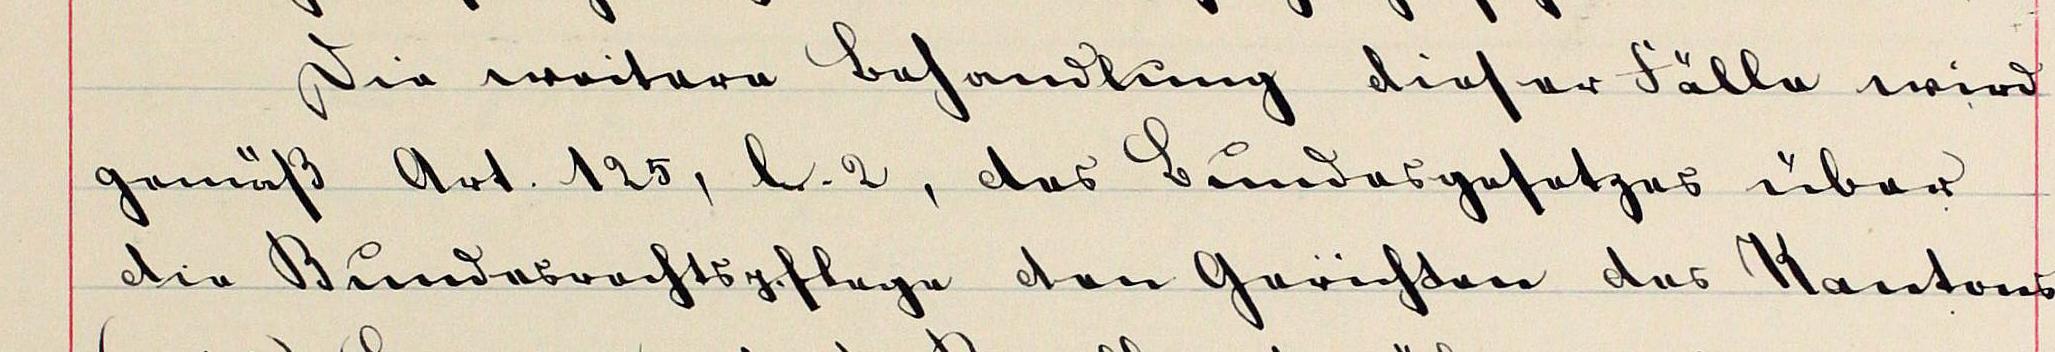 Die weitere Behandlung dieser Fälle wird
gemäß Art. 125, l. 2, des Bundesgesetzes über
die Bundesrechtspflege den Gerichten des Kantons